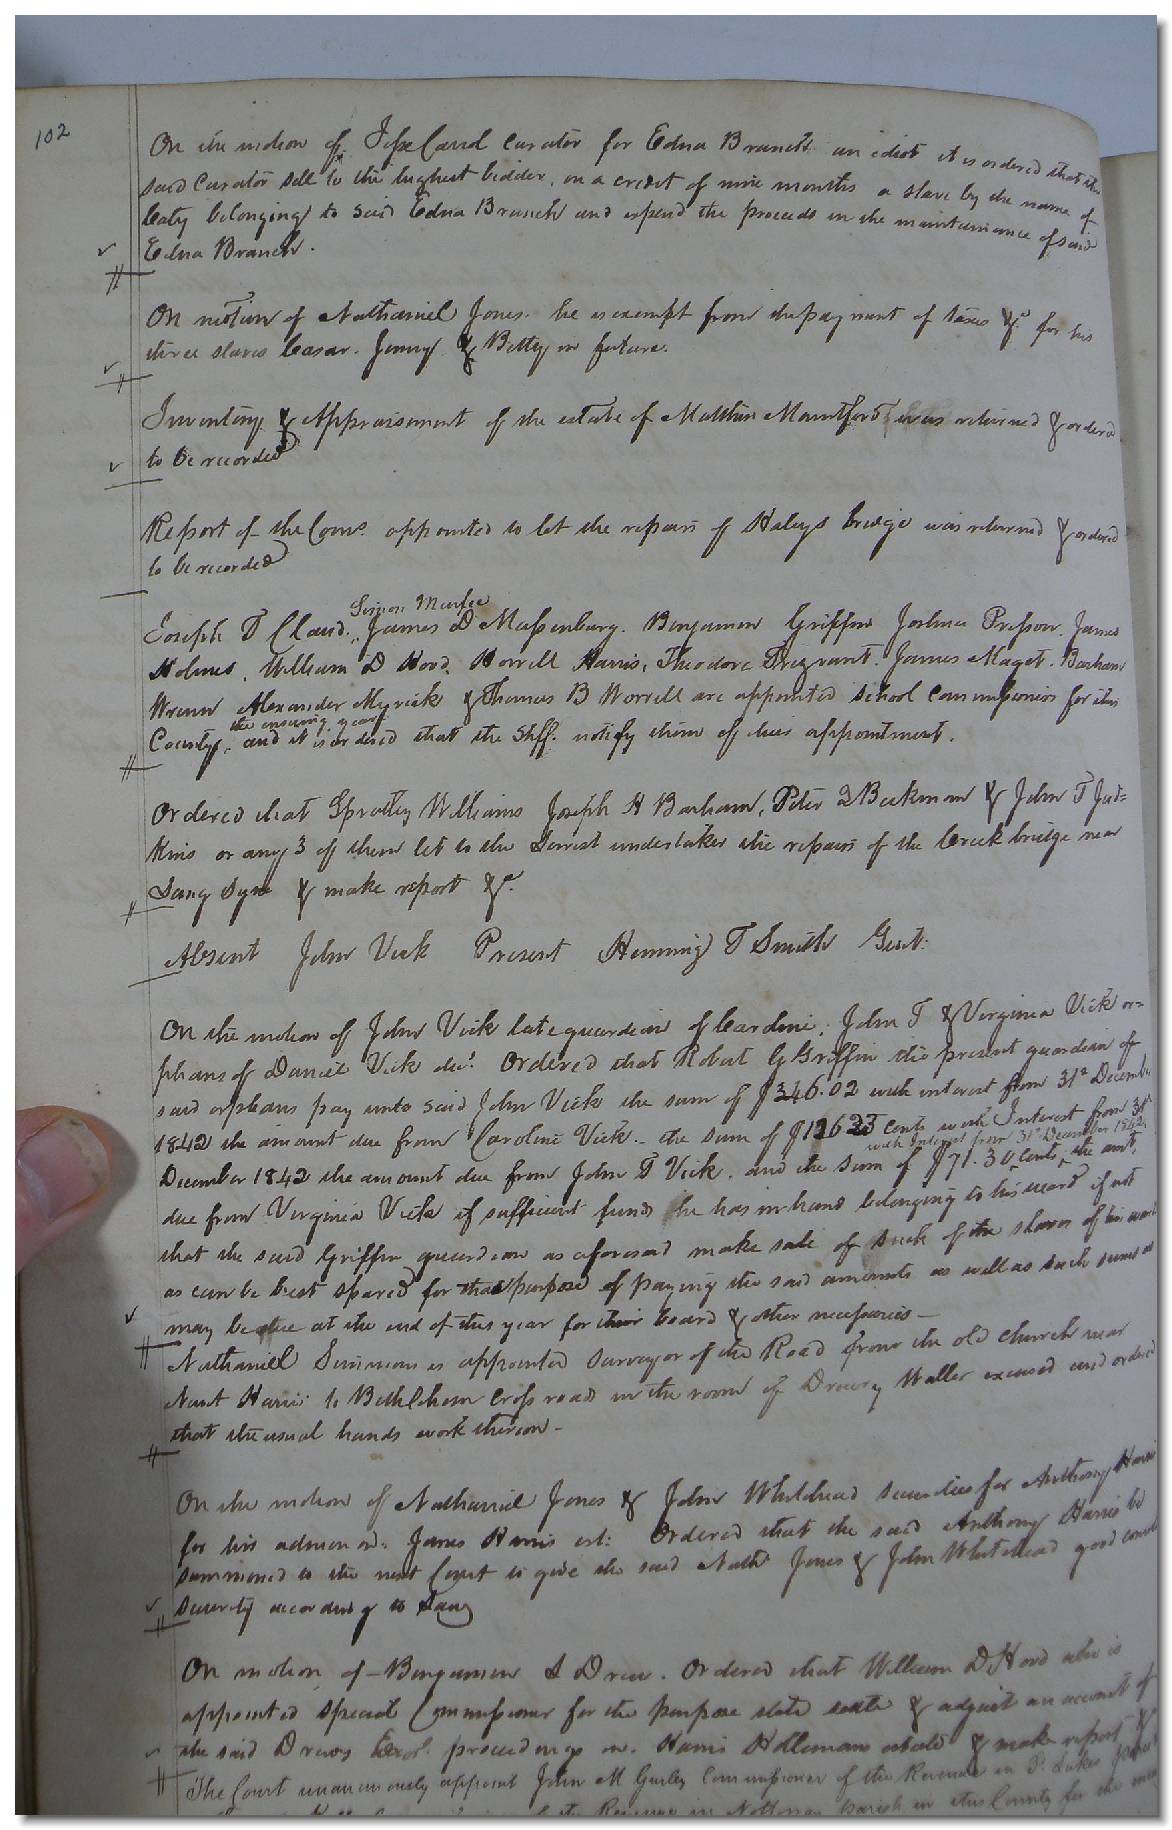 102
On the motion of Jesse Carrol Curator for Edna Branch an idiot it is ordered that the
said Curator sell to the highest bidder, on a credit of nine months a slave by the name of
Caty belonging to said Edna Branch and expend the proceeds in the maintainance of said
Edna Branch.
On motion of Nathaniel Jones. he is exempt from the payment of taxes &c for his
three slaves Casar. Jenny & Betty in future.
Inventory & Appraisement of the estate of Matthew Mountford was returned & ordered
to be recorded
Report of the Coms. appointed to let the repairs of Haleys bridge was returned & ordered
to be recorded
Simon Murfee
Joseph T Claud., James D Massenburg. Benjamin Griffin Joshua Pressow. James
Holmes, William D Hood, Howell Harris, Theodore Trezvant. James Maget. Barham
Wrenn Alexander Myrick & Thomas B Worrell are appointed school commissioners for this
the ensuing year
County, and it is ordered that the Shff. notify them of their appointment.
Ordered that Spratley Williams Joseph H Barham, Peter Beekman & John T Jud=
kins or any 3 of them let to the lowest undertaker the repairs of the Creek bridge near
Lang Syne & make report &c.
Absent John Vick Present Henning T Smith Gent:
On the motion of John Vick late guardian of Caroline, John T & Virginia Vick or=
phans of Daniel Vick decd. Ordered that Robert G Griffin the present guardian of
said orphans pay unto said John Vick the sum of $346.02 with interest from 31st December
1842 the amount due from Caroline Vick. the sum of cents with Interest from 31st
with Interest from 31st December 1842
December 1842 the amount due from John T Vick. and the sum of $71.30 cents, the amt.
due from Virginia Vick if sufficient funds he has in hand belonging to his ward if not
that the said Griffin guardian as aforesaid make sale of such of the slaves of his wards
as can be best spared for that purpose of paying the said amounts as well as such sums as
may be due at the end of this year for their board & other necessaries —
Nathaniel Simmons is appointed Surveyor of the Road from the old church near
Harris to Bethlehem Cross road in the room of Drewry Waller excused and ordered
that the usual hands work thereon —
On the motion of Nathaniel Jones & John Whitehead securities for Anthony Harris
for his admon on James Harris est: Ordered that the said Anthony Harris be
summoned to the next Court to give the said Nathl Jones & John Whitehead good counter
security according to Law
On motion of Benjamin Drew. Ordered that William D Hood who is
appointed special Commissioner for the purpose state settle & adjust an account of
the said Drews proceedings on. Harris Holleman estate & make report &
The Court unanimously appoint John M Gurley Commissioner of the Revenue in St. Lukes parish
the Revenue in Nottoway parish in this County for the